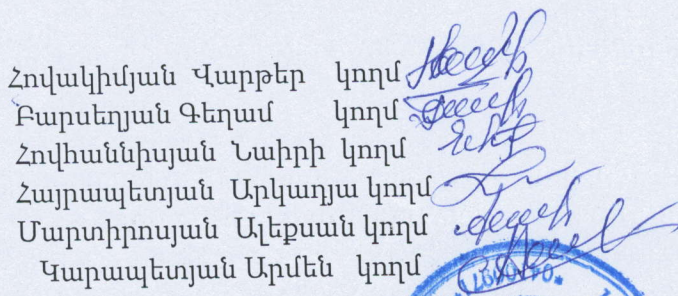 Հովակիմյան Վարթեր կողմ
Բարսեղյան Գեղամ կողմ
Հովհաննիսյան Նաիրի կողմ
Հայրապետյան Արկադյա կողմ
Մարտիրոսյան Ալեքսան կողմ
Կարապետյան Արմեն կողմ